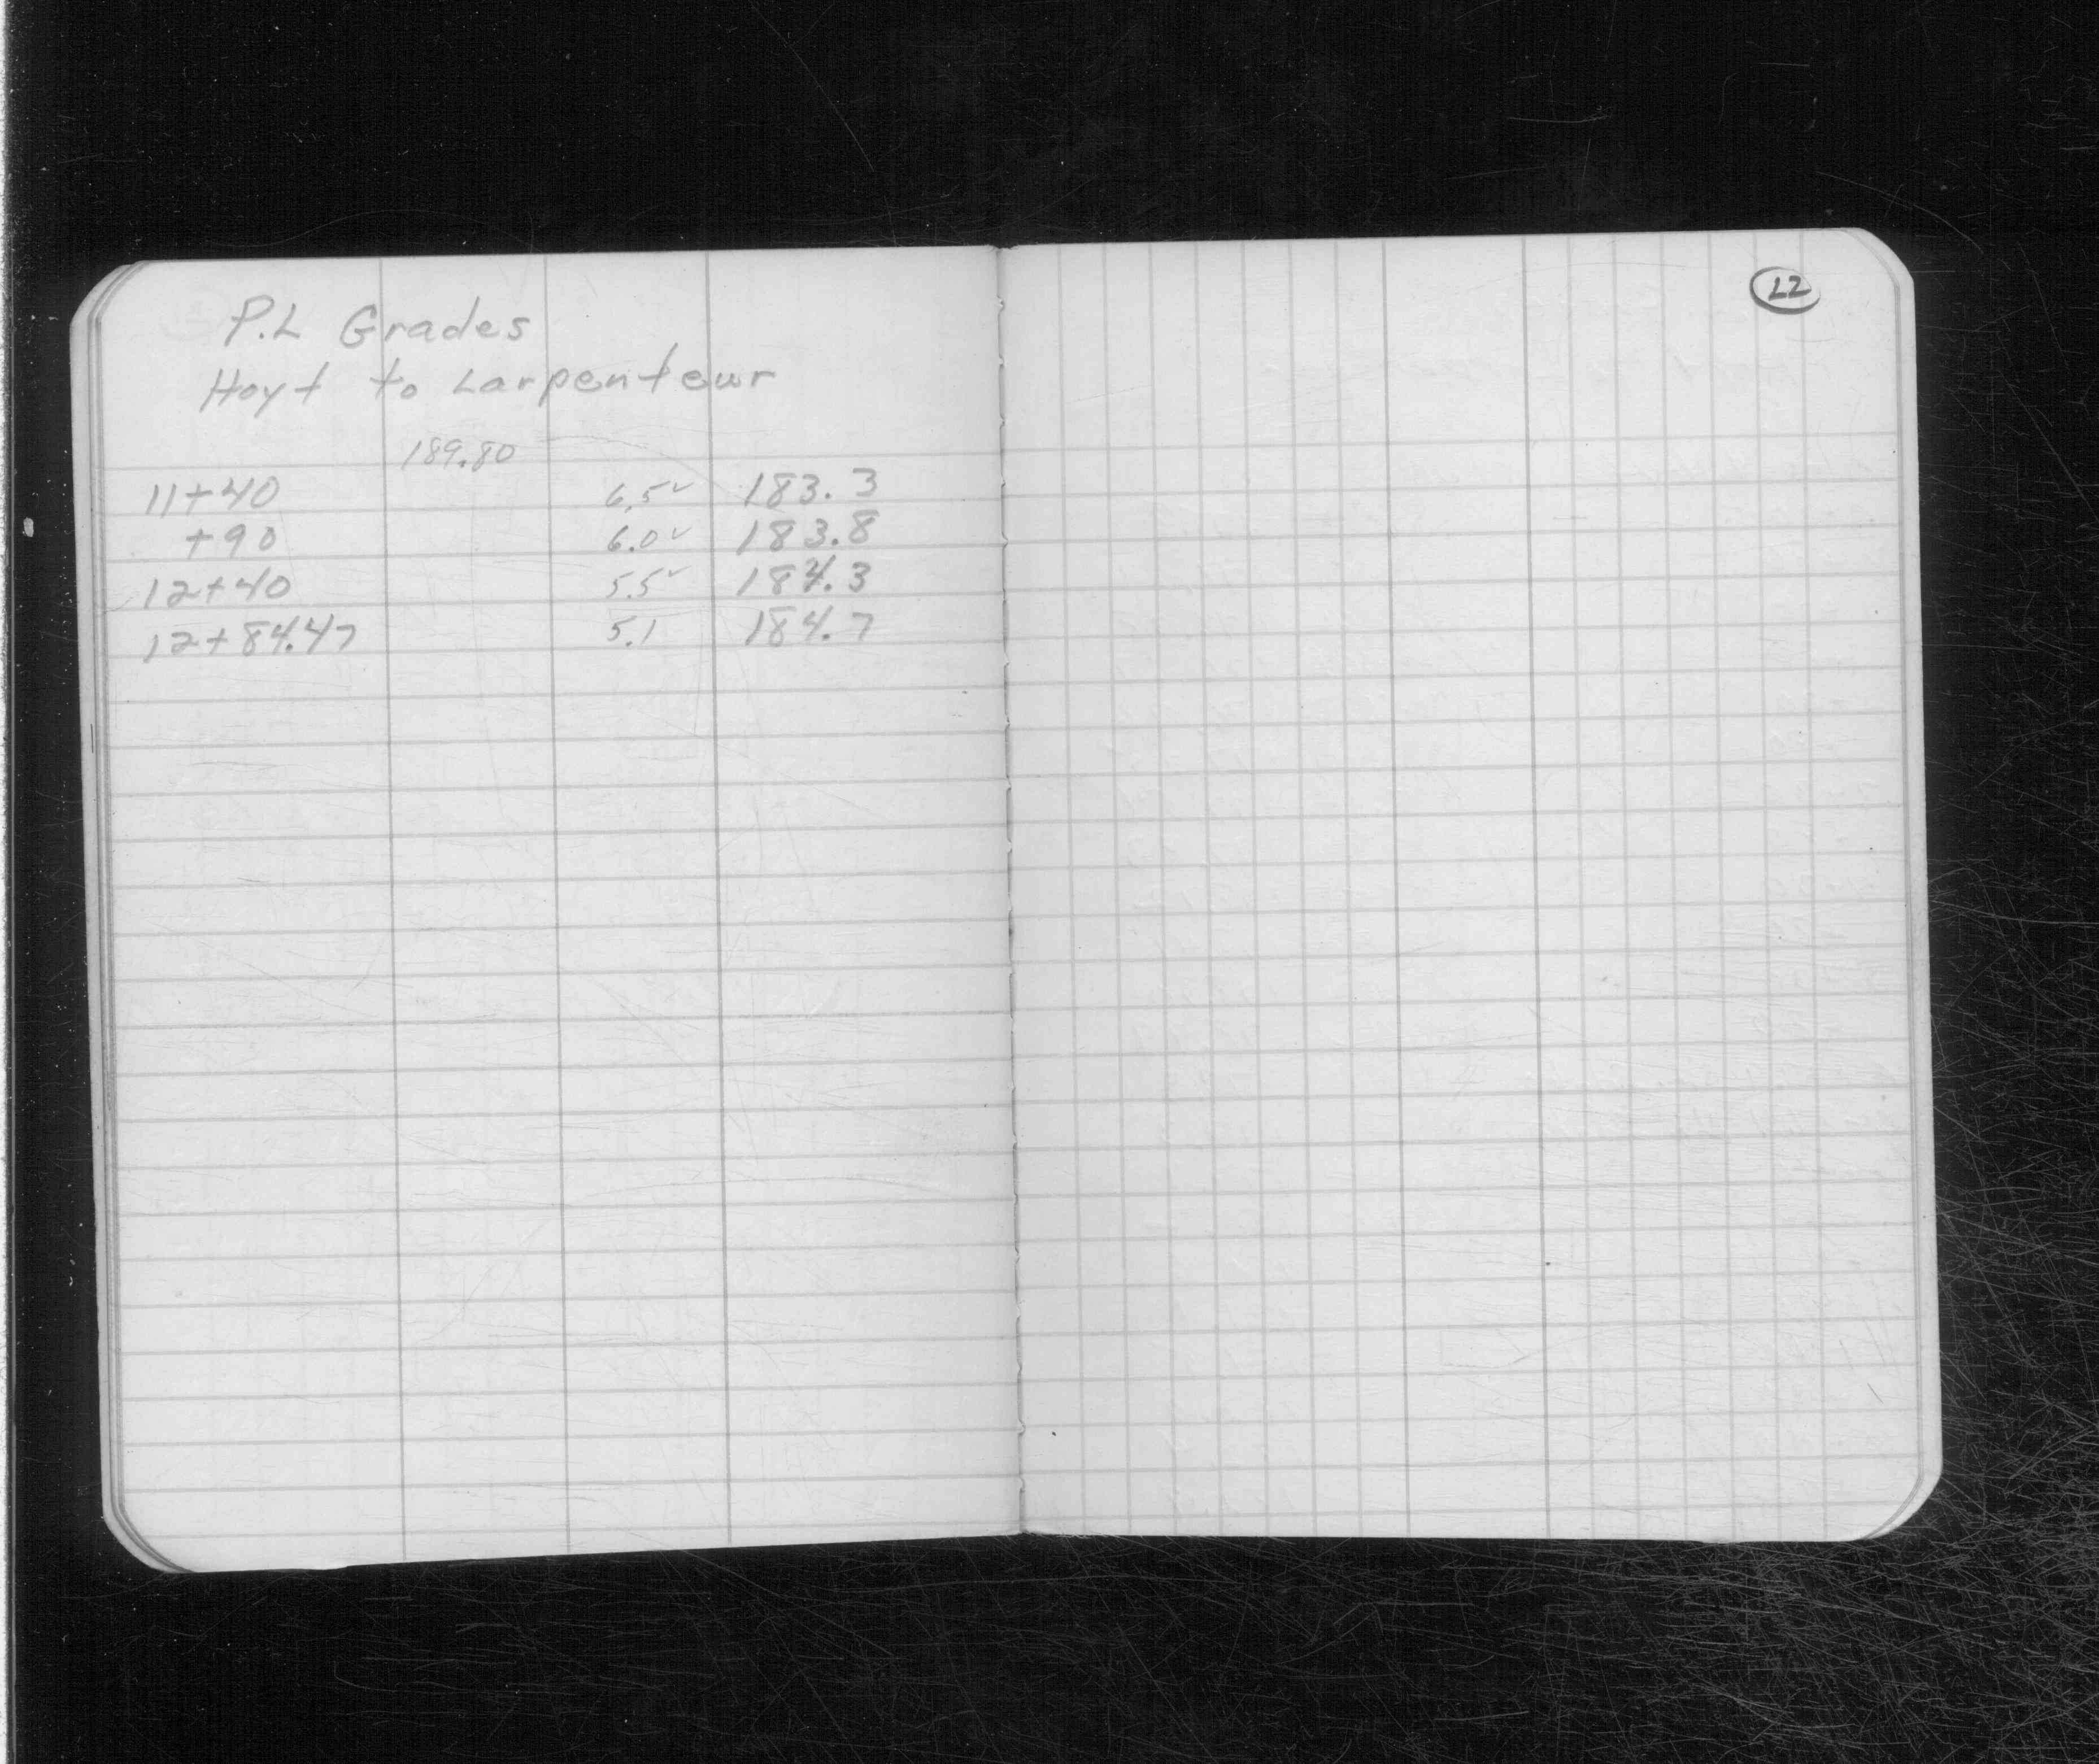 P.L Grades
Hoyt to Larpenteur
189.80
11+40 6.5✓ 183.3
+90 6.0✓ 183.8
12+40 5.5✓ 184.3
12+84.47 5.1 184.7
22